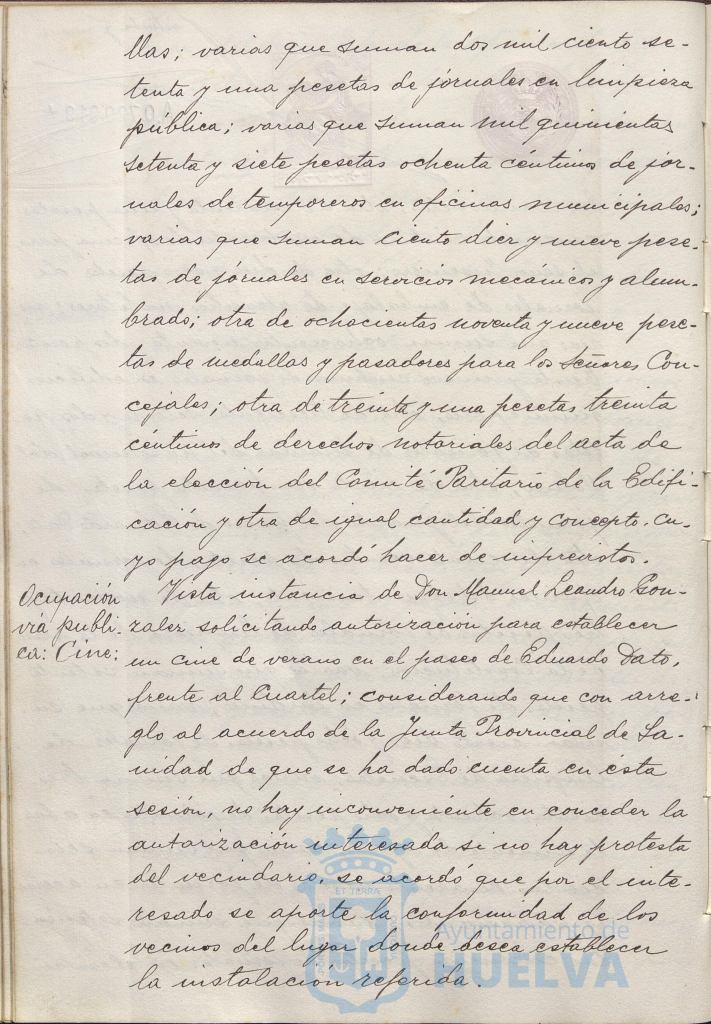 llas; varias que suman dos mil ciento se-
tenta y una pesetas de jornales en limpieza
pública; varias que suman mil quinientas
setenta y siete pesetas ochenta céntimos de jor-
nales de temporeros en oficinas municipales;
varias que suman ciento diez y nueve pese-
tas de jornales en servicios mecánicos y alum-
brado; otra de ochocientas noventa y nueve pese-
tas de medallas y pasadores para los Señores Con-
cejales; otra de treinta y una pesetas treinta
céntimos de derechos notariales del acta de
la elección del Comité Paritario de la Edifi-
cación y otra de igual cantidad y concepto, cu-
yo pago se acordó hacer de imprevistos.
Ocupación
vía públi-
ca: Cine:
Vista instancia de Don Manuel Leandro Gon-
zalez solicitando autorización para establecer
un cine de verano en el paseo de Eduardo Dato,
frente al Cuartel; considerando que con arre-
glo al acuerdo de la Junta Provincial de Sa-
nidad de que se ha dado cuenta en ésta
sesión, no hay inconveniente en conceder la
autorización interesada si no hay protesta
del vecindario, se acordó que por el inte-
resado se aporte la conformidad de los
vecinos del lugar donde desea establecer
la instalación referida.
Ayuntamiento de
HUELVA